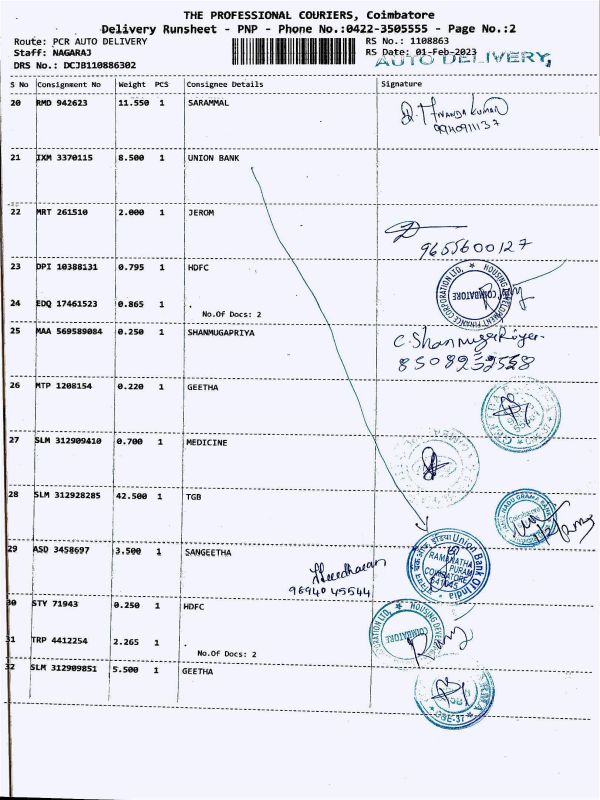 THE PROFESSIONAL COURIERS, Coimbatore
Delivery Runsheet - PNP - Phone No.:0422-3505555 - Page No.:2
Route: PCR AUTO DELIVERY
RS No.: 1108863
Staff: NAGARAJ
RS Date: 01-Feb-2023
AUTO DELIVERY,
DRS No.: DCJB110886302
S No Consignment No Weight PCS Consignee Details Signature
20 RMD 942623 11.550 1 SARAMMAL
9940911137
21 IXM 3370115 8.500 1 UNION BANK
22 MRT 261510 2.000 1 JEROM
9655600127
23 DPI 10388131 0.795 1 HDFC
HOUSING DEVELOPMENT FINANCE CORPORATION LTD.
COIMBATORE
24 EDQ 17461523 0.865 1 .
No.Of Docs: 2
25 MAA 569589084 0.250 1 SHANMUGAPRIYA
26 MTP 1208154 0.220 1 GEETHA
27 SLM 312909410 0.700 1 MEDICINE
28 SLM 312928285 42.500 1 TGB
29 ASD 3458697 3.500 1 SANGEETHA
Union Bank Of India
RAMANATHA
PURAM
COIMBATORE
641045
9694045544
30 STY 71943 0.250 1 HDFC
COIMBATORE
31 TRP 4412254 2.265 1 .
No.Of Docs: 2
32 SLM 312909851 5.500 1 GEETHA
CBE-37